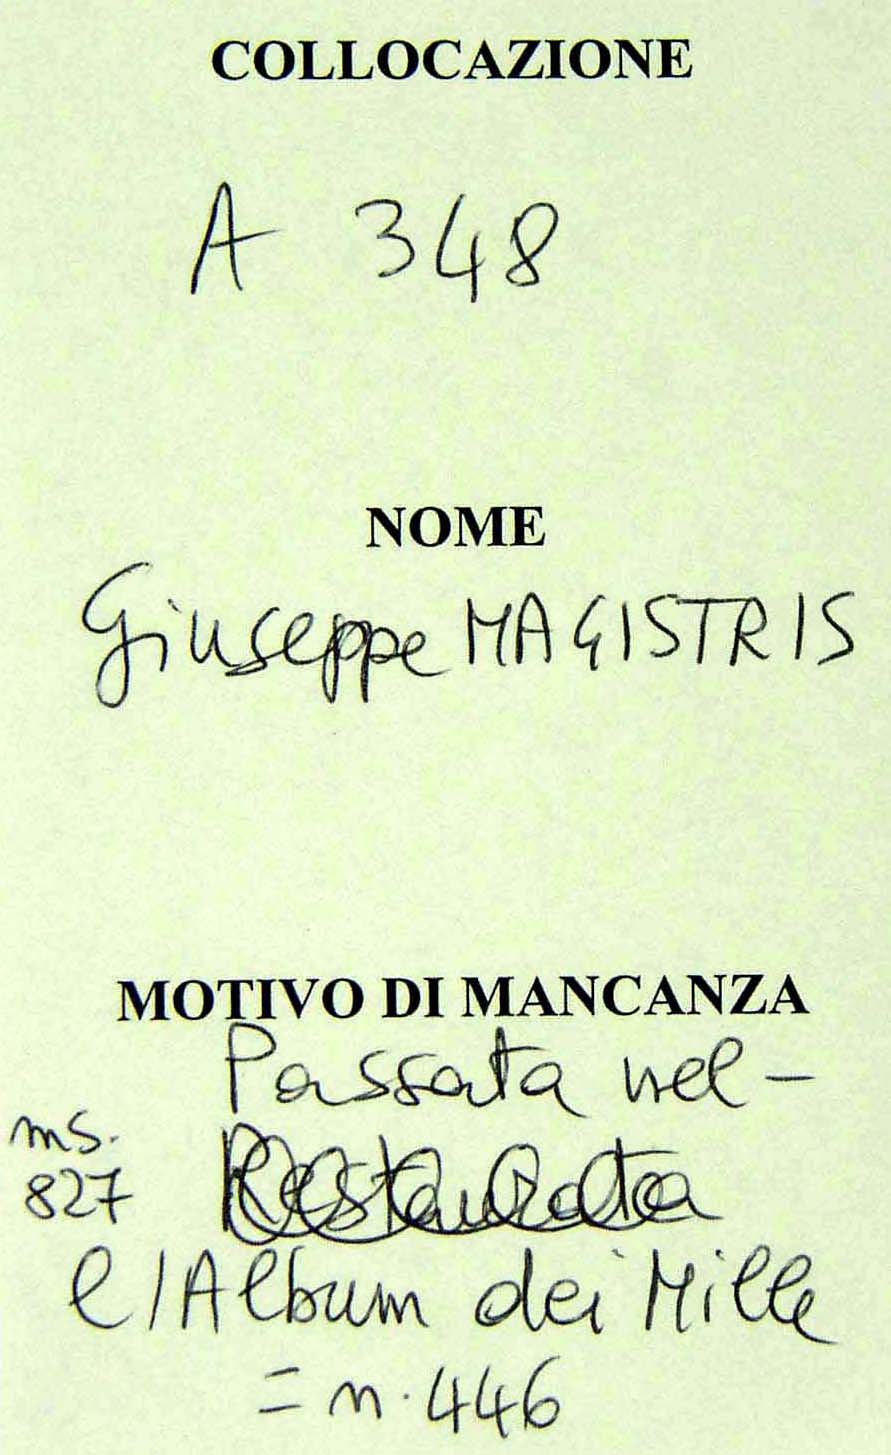 COLLOCAZIONE
A 348
NOME
Giuseppe MAGISTRIS
MOTIVO DI MANCANZA
Passata nel-
ms.
827
Restaurata
l'Album dei Mille
= n. 446